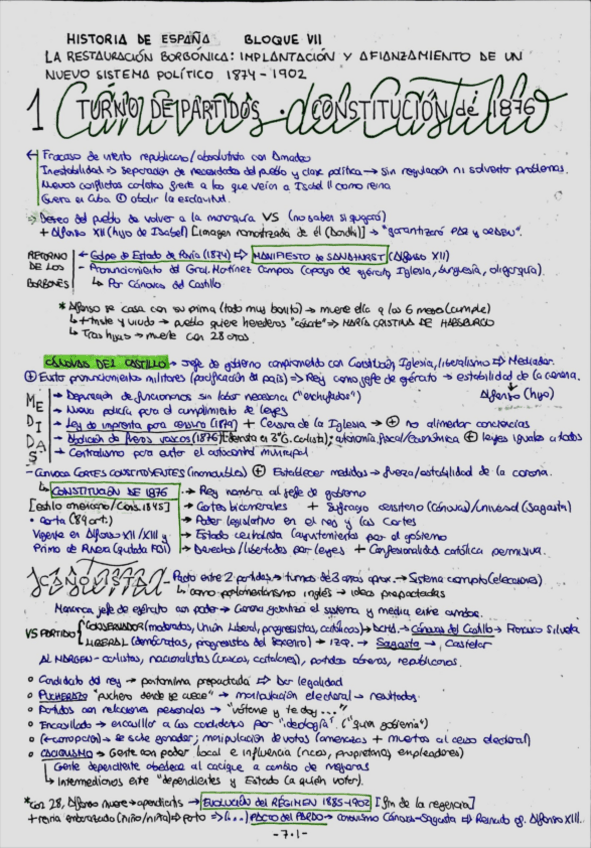 HISTORIA DE ESPAÑA BLOQUE VII
LA RESTAURACIÓN BORBÓNICA: IMPLANTACIÓN Y AFIANZAMIENTO DE UN
NUEVO SISTEMA POLÍTICO 1874-1902
1 TURNO DE PARTIDOS · CONSTITUCIÓN de 1876
Cánovas del Castillo
← Fracaso de intento republicano/absolutista con Amadeo
Inestabilidad → separación de necesidades del pueblo y clase política → sin regulación ni solventar problemas.
Nuevos conflictos carlistas frente a los que veían a Isabel II como reina
Guerra en Cuba abolir la esclavitud.
⇒ Deseo del pueblo de volver a la monarquía VS (no saber si jugará)
+ Alfonso XII (hijo de Isabel) [imagen romantizada de él (Dandhi)] → "garantizará PAZ y ORDEN".
RETORNO DE LOS BORBONES
← Golpe de Estado de Pavía (1874) ⇒ MANIFIESTO de SANDHURST (Alfonso XII)
- Pronunciamiento del Gral. Martínez Campos (apoyo de ejército, Iglesia, burguesía, oligarquía).
↳ Por Cánovas del Castillo
* Alfonso se casa con su prima (todo muy bonito) → muere ella a los 6 meses (cumple)
↳ + triste y viudo → pueblo quiere herederos "cásate" ⇒ MARÍA CRISTINA DE HABSBURGO
↳ Tras hijos → muere con 28 años
CÁNOVAS DEL CASTILLO → Jefe de gobierno comprometido con Constitución, Iglesia, liberalismo ⇒ Mediador.
⊕ Evitar pronunciamientos militares (pacificación del país) ⇒ Rey como jefe de ejército → estabilidad de la corona.
Alfonso (hijo)
MEDIDAS
→ Depuración de funcionarios sin labor necesaria ("enchufados")
→ Nueva policía para el cumplimiento de leyes
→ Ley de imprenta para censura (1879) + Censura de la Iglesia → ⊕ no alimentar conciencias
→ Abolición de fueros vascos (1876) [derrota en 3ª G. carlista]; autonomía fiscal/económica ⊕ leyes iguales a todos
→ Centralismo para evitar el autocontrol municipal
- Convoca CORTES CONSTITUYENTES (inamovibles) ⊕ Establecer medidas → fuerza/estabilidad de la corona.
↳ CONSTITUCIÓN DE 1876 → Rey nombra al jefe de gobierno
[estilo americano/Cons. 1845] → Cortes bicamerales + Sufragio censitario (Cánovas)/Universal (Sagasta)
• Corta (89 art.) → Poder legislativo en el rey y las Cortes
Vigente en Alfonso XII/XIII y → Estado centralista (ayuntamientos por el gobierno)
Primo de Rivera (quitada por) → Derechos/libertades por leyes + Confesionalidad católica permisiva.
Sistema
CANOVISTA - Pacto entre 2 partidos → turnos de 3 años aprox. → Sistema corrupto (elecciones)
↳ como parlamentarismo inglés → ideas prepactadas
Monarca, jefe de ejército con poder → Corona garantiza el sistema y media entre ambos.
VS PARTIDO { CONSERVADOR (moderados, Unión Liberal, progresistas, católicos) → DCHA. → Cánovas del Castillo → Francisco Silvela
LIBERAL (demócratas, progresistas del sexenio) → IZQ. → Sagasta → Castelar
AL MARGEN - carlistas, nacionalistas (vascos, catalanes), partidos obreros, republicanos.
○ Candidato del rey → pantomima prepactada ⇒ Dar legalidad
○ PUCHERAZO "puchero donde se cuece" → manipulación electoral → resultados
○ Partidos con relaciones personales → "vótame y te doy..."
○ Encasillado → encasillar a los candidatos por "ideología". ("quien gobierna")
○ (← corrupción) → se sabe ganador; manipulación de votos (amenazas + muertos al censo electoral)
○ CACIQUISMO → Gente con poder local e influencia (ricos, propietarios, empleadores)
Gente dependiente obedece al cacique a cambio de mejoras
↳ Intermediarios entre "dependientes y Estado (a quién votar).
* Con 28, Alfonso muere → apendicitis → EVOLUCIÓN del RÉGIMEN 1885-1902 [fin de la regencia]
+ reina embarazada (niño/niña) ⇒ parto ⇒ (...) PACTO del PARDO → convenio Cánovas-Sagasta ⇒ Reinado of. Alfonso XIII...
-7·1-